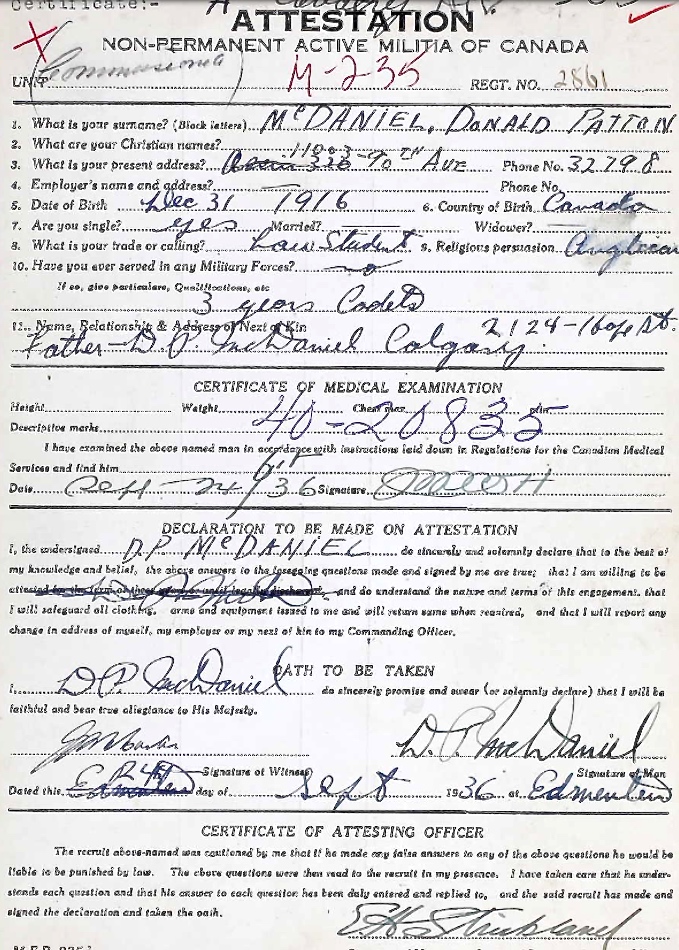 Certificate:-
ATTESTATION
NON-PERMANENT ACTIVE MILITIA OF CANADA
UNIT M-2-35 REGT. NO. 2861
1. What is your surname? (Block letters) McDANIEL, DONALD PATTON
2. What are your Christian names?
3. What is your present address? 11003-90TH AVE Phone No. 32798
4. Employer's name and address? — Phone No.
5. Date of Birth Dec 31 1916 6. Country of Birth Canada
7. Are you single? yes Married? — Widower? —
8. What is your trade or calling? Law Student 9. Religious persuasion Anglican
10. Have you ever served in any Military Forces? no
If so, give particulars, Qualifications, etc
3 years Cadets
11. Name, Relationship & Address of Next of Kin 2124- St.
Father-D.P. McDaniel Calgary.
CERTIFICATE OF MEDICAL EXAMINATION
Height Weight Chest max. min.
Descriptive marks 40-20835
I have examined the above named man in accordance with instructions laid down in Regulations for the Canadian Medical
Services and find him fit
Date Sept 24/36 Signature
DECLARATION TO BE MADE ON ATTESTATION
I, the undersigned D.P. McDANIEL do sincerely and solemnly declare that to the best of
my knowledge and belief, the above answers to the foregoing questions made and signed by me are true; that I am willing to be
attested for the term of three and do understand the nature and terms of this engagement, that
I will safeguard all clothing, arms and equipment issued to me and will return same when required, and that I will report any
change in address of myself, my employer or my next of kin to my Commanding Officer.
OATH TO BE TAKEN
I, D.P. McDaniel do sincerely promise and swear (or solemnly declare) that I will be
faithful and bear true allegiance to His Majesty.
D. P. McDaniel
Signature of Witness Signature of Man
Dated this 24 day of Sept 1936 at Edmonton
CERTIFICATE OF ATTESTING OFFICER
The recruit above-named was cautioned by me that if he made any false answers to any of the above questions he would be
liable to be punished by law. The above questions were then read to the recruit in my presence. I have taken care that he under-
stands each question and that his answer to each question has been duly entered and replied to, and the said recruit has made and
signed the declaration and taken the oath.
Strickland